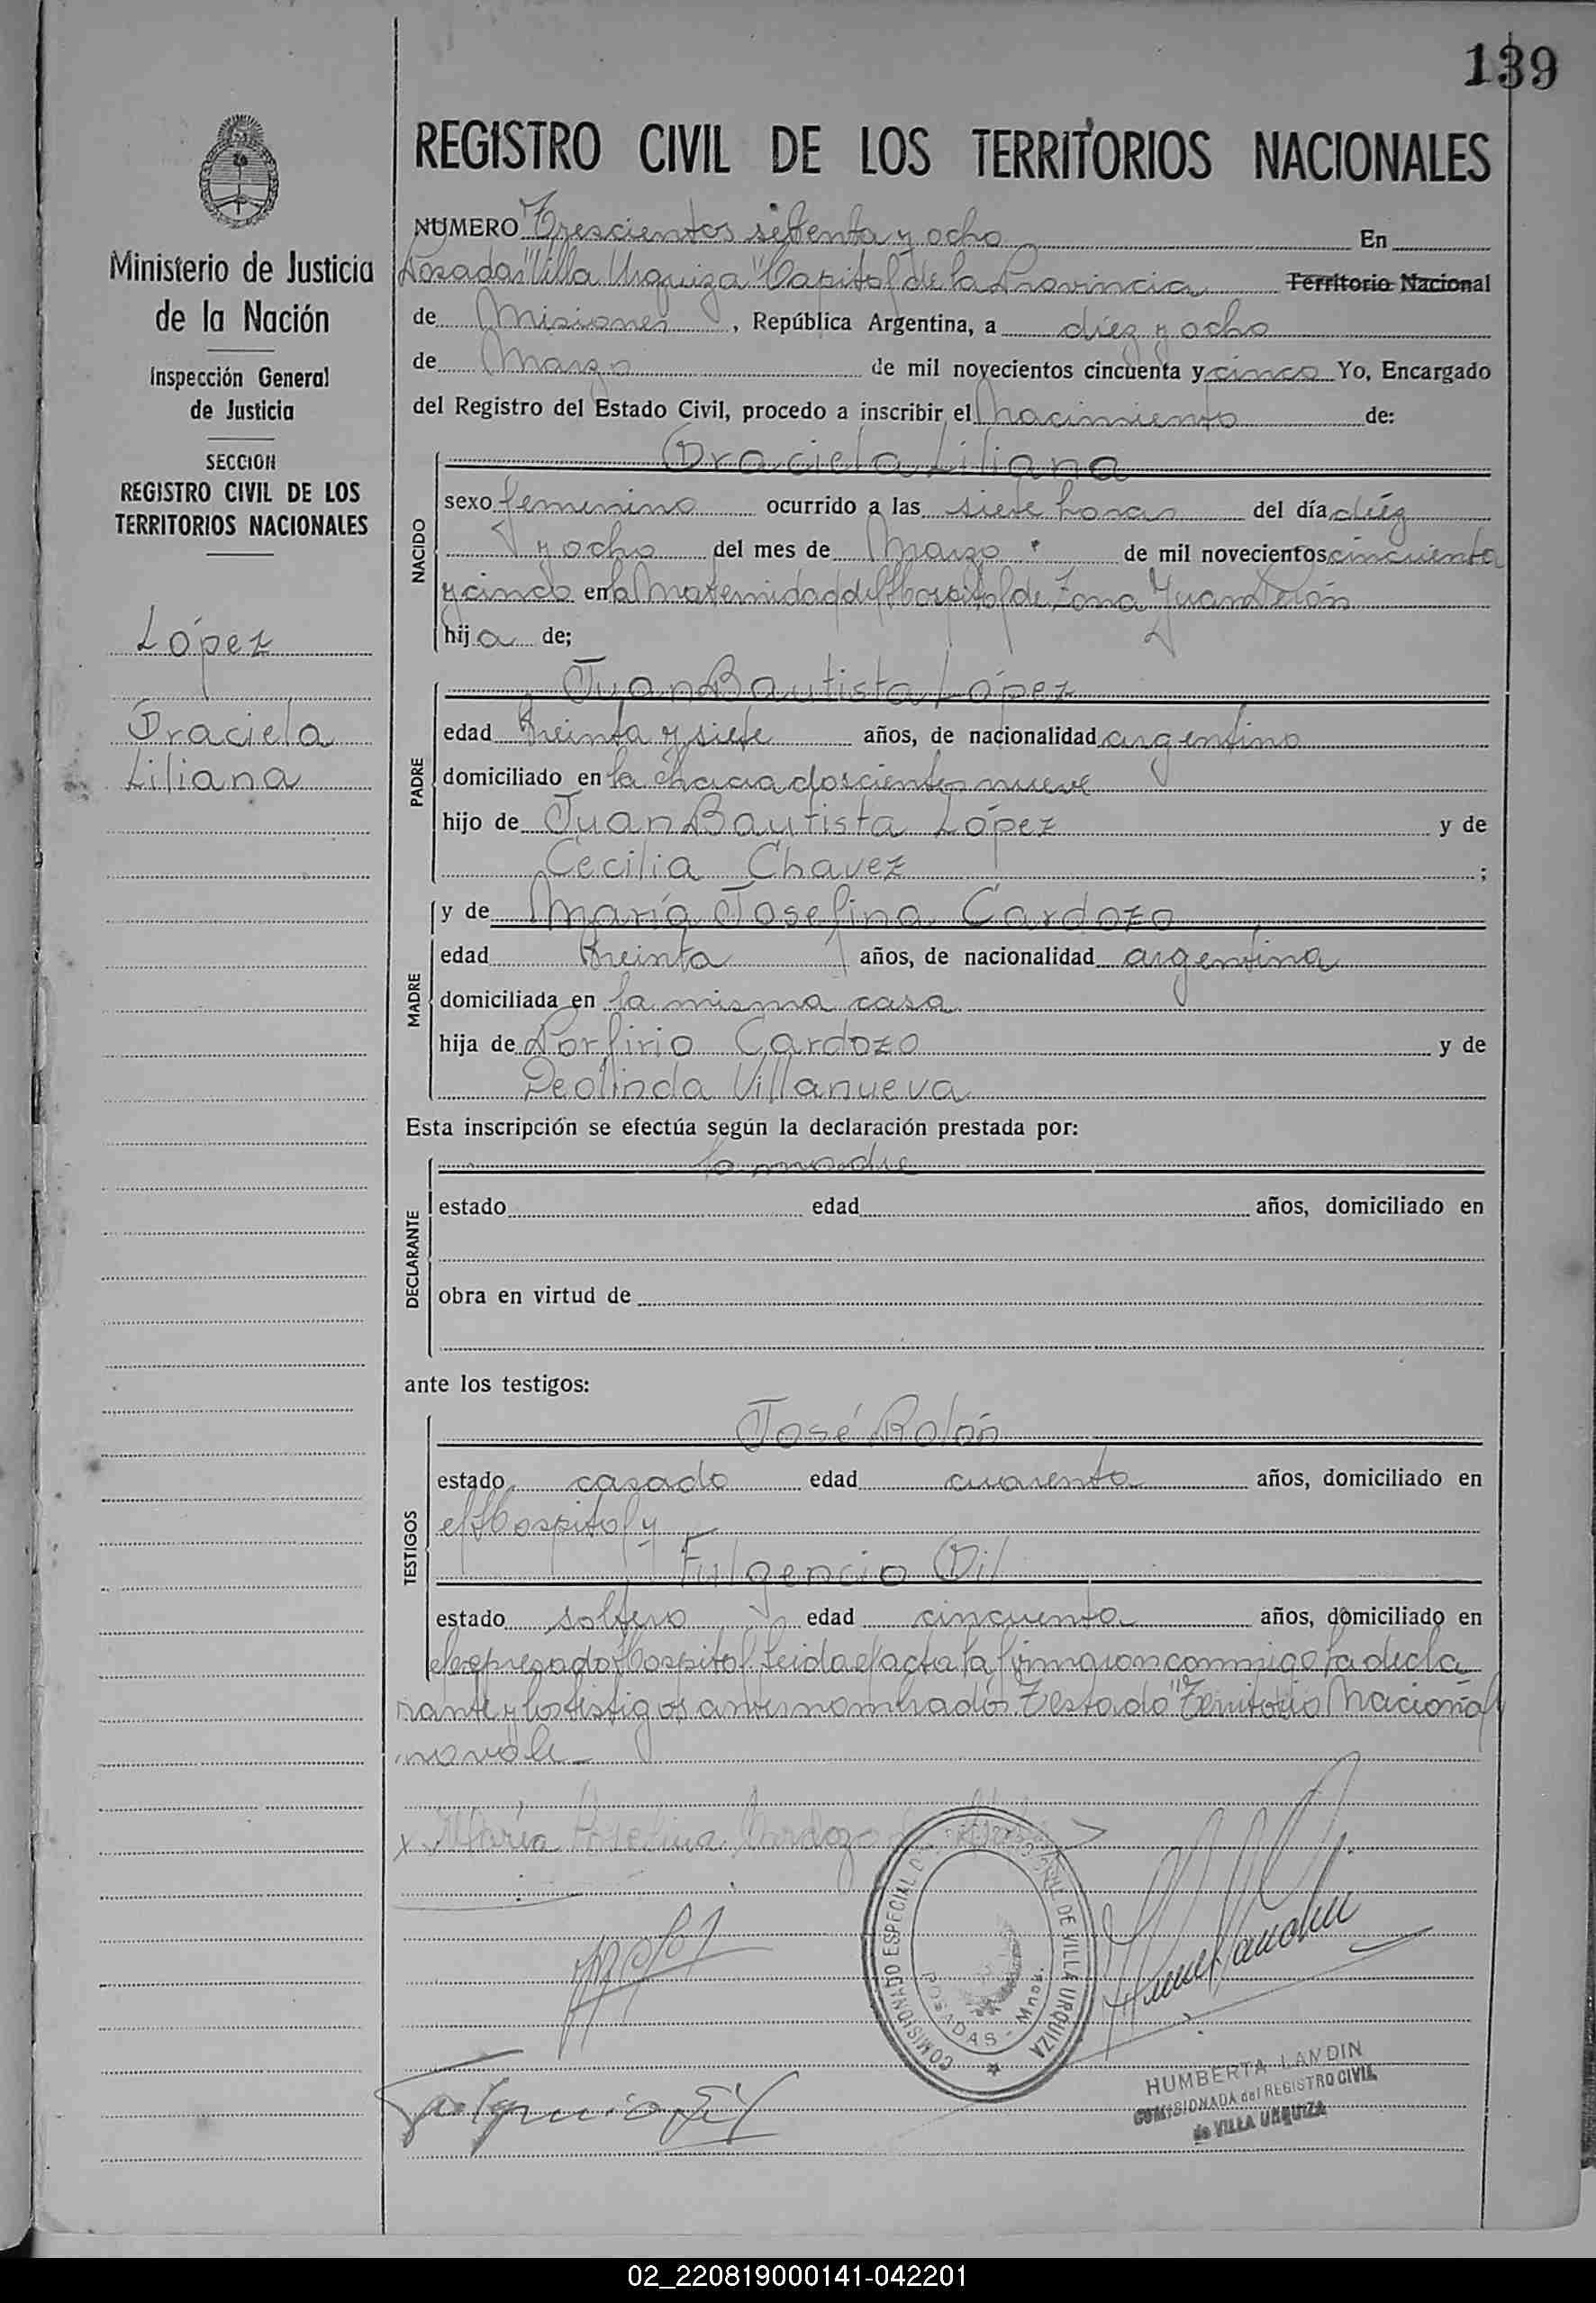 139
REGISTRO CIVIL DE LOS TERRITORIOS NACIONALES
Ministerio de Justicia
de la Nación
Inspección General
de Justicia
SECCION
REGISTRO CIVIL DE LOS
TERRITORIOS NACIONALES
López
Graciela
Liliana
NUMERO Trescientos setenta y ocho En
Posadas "Villa Urquiza" Capital de la Provincia Territorio Nacional
de Misiones, República Argentina, a diez y ocho
de Marzo de mil novecientos cincuenta y cinco Yo, Encargado
del Registro del Estado Civil, procedo a inscribir el Nacimiento de:
NACIDO
Graciela Liliana
sexo femenino ocurrido a las siete horas del día diéz
y ocho del mes de Marzo de mil novecientos cincuenta
y cinco en la Maternidad del Hospital de Zona Juan Perón
hija de;
PADRE
Juan Bautista López
edad treinta y siete años, de nacionalidad argentino
domiciliado en la chacra doscientos nueve
hijo de Juan Bautista López y de
Cecilia Chavez ;
MADRE
y de María Josefina Cardozo
edad treinta años, de nacionalidad argentina
domiciliada en la misma casa
hija de Porfirio Cardozo y de
Deolinda Villanueva
Esta inscripción se efectúa según la declaración prestada por:
DECLARANTE
la madre
estado edad años, domiciliado en
obra en virtud de
ante los testigos:
TESTIGOS
José Rolón
estado casado edad cuarenta años, domiciliado en
el Hospital y
Fulgencio Gil
estado soltero edad cincuenta años, domiciliado en
el expresado Hospital Leida el acta la firmaron conmigo la decla
rante y los testigos antes nombrados. Testado "Territorio Nacional
no vale
x María Josefina Cardozo de
COMISIONADO ESPECIAL DEL REGISTRO CIVIL DE VILLA URQUIZA
POSADAS - Mnes.
Fulgencio Gil
HUMBERTA LANDIN
COMISIONADA del REGISTRO CIVIL
de VILLA URQUIZA
02_220819000141-042201